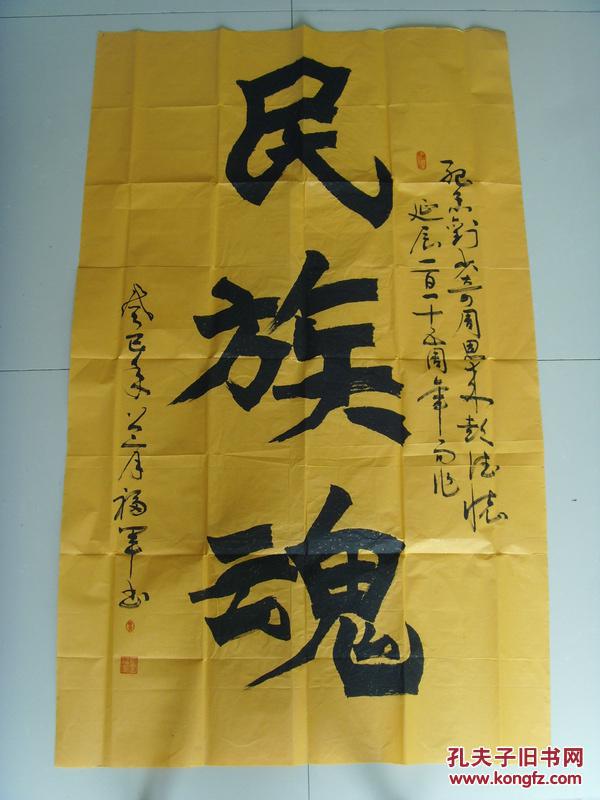 民族魂
纪念刘少奇周恩来彭德怀
延辰一百一十五周年而作
癸巳年公三月福军书
孔夫子旧书网
www.kongfz.com